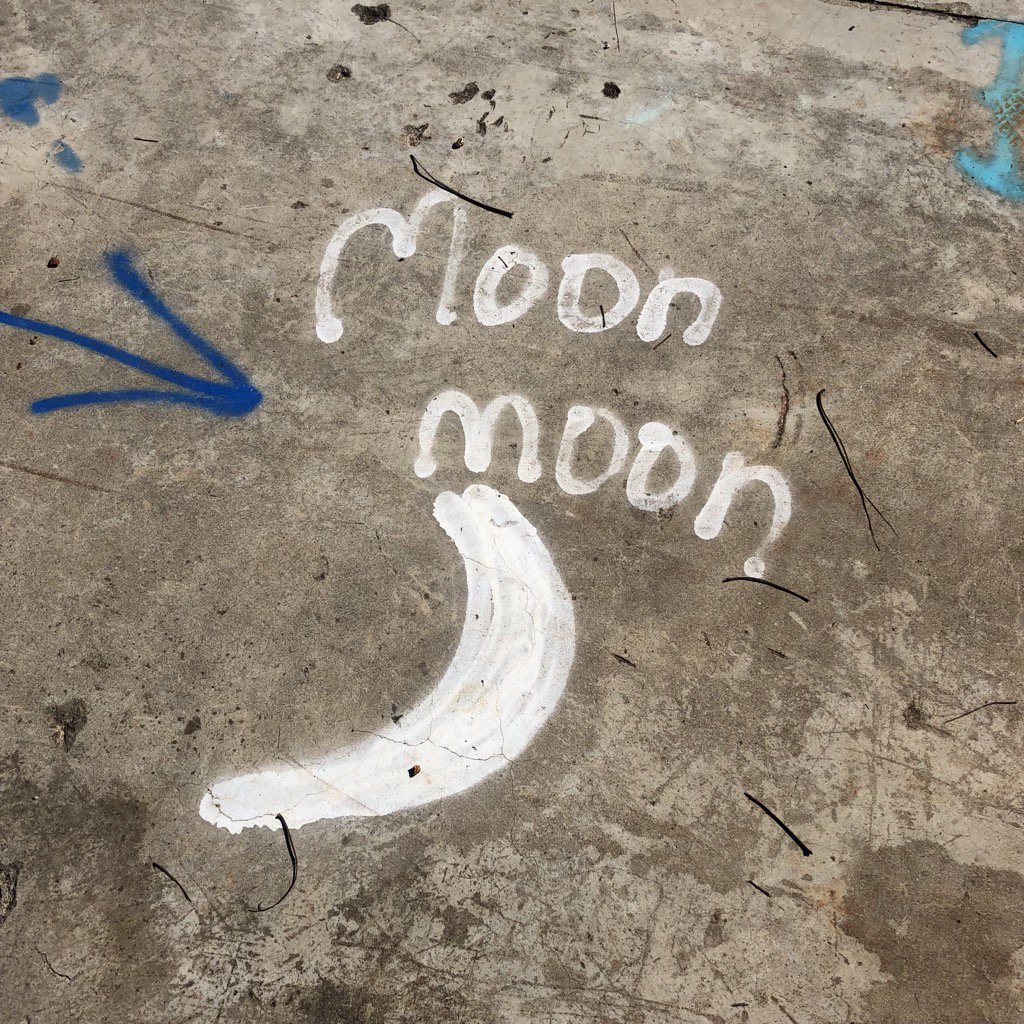 Moon
moon